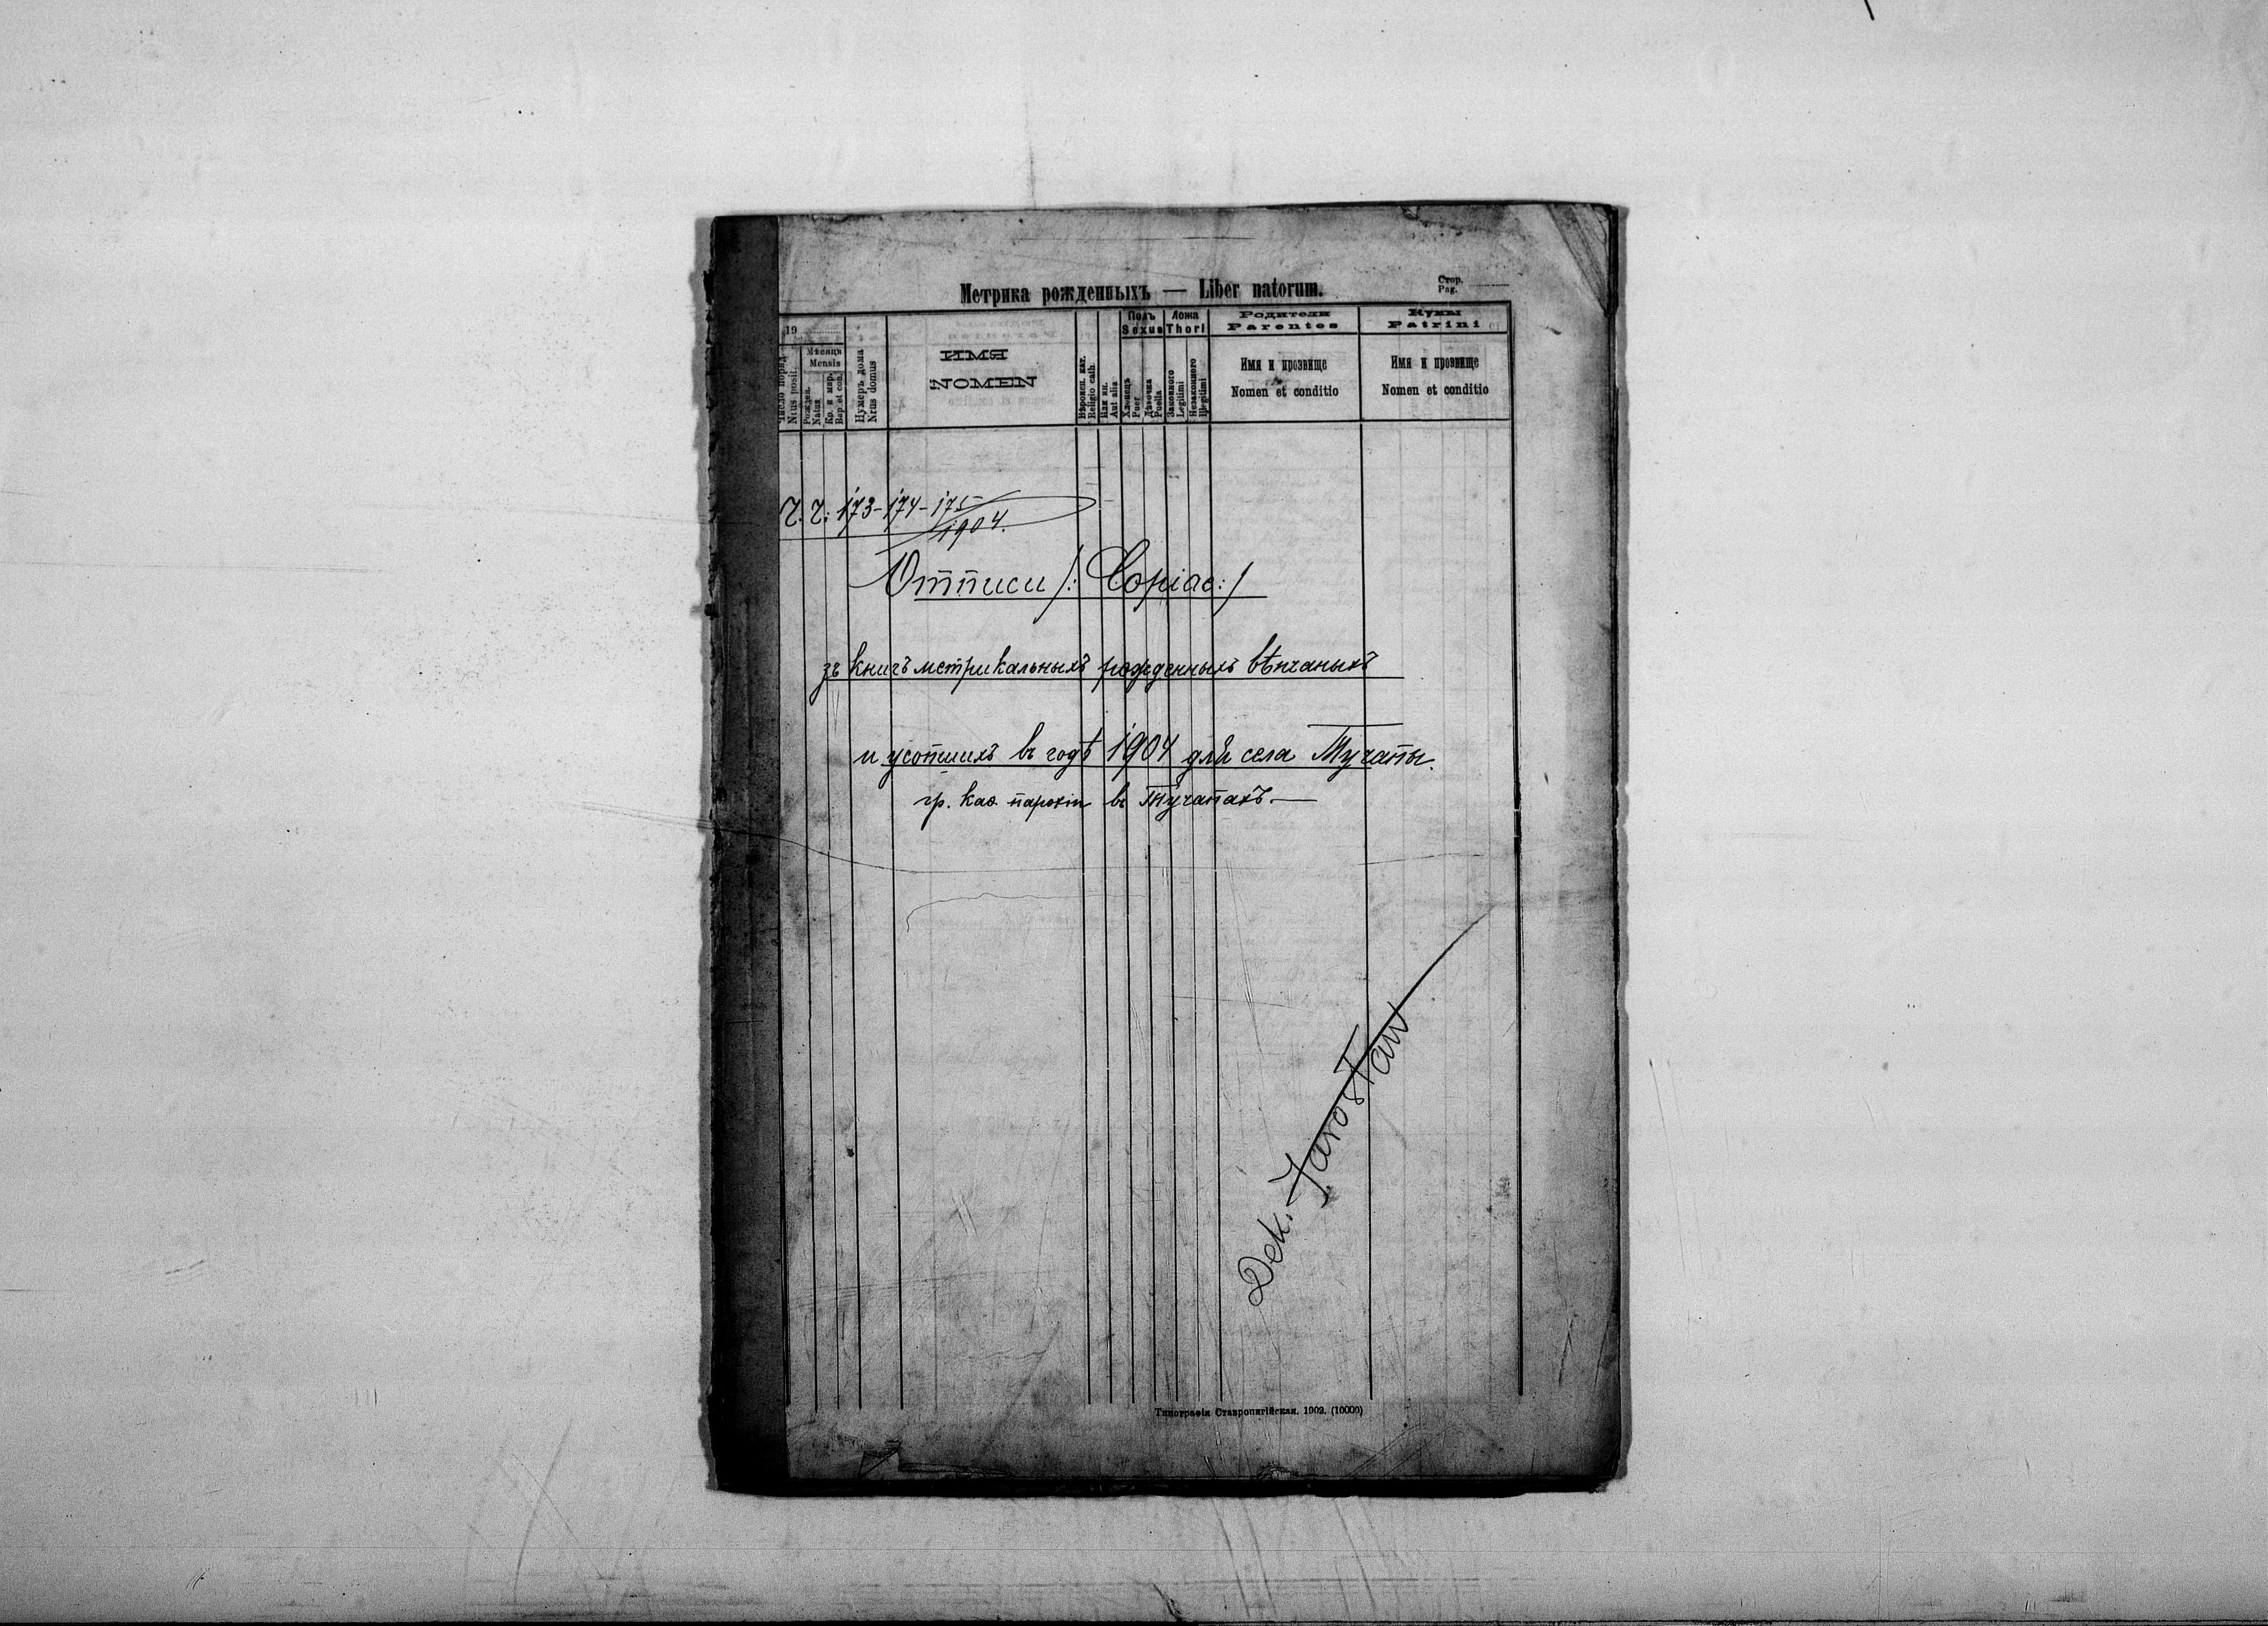 Метрика рожденныхъ — Liber natorum.
Стор.
Pag.
19
Число поряд.
Nrus posit.
Мѣсяць
Mensis
Рожден.
Natus
Кр. и мѵр.
Bap. et con.
Нумеръ дома
Nrus domus
ИМЯ
NOMEN
Вѣроисп. кат.
Religio cath.
Или ин.
Aut alia
Полъ
Sexus
Хлопець
Puer
Дѣвочка
Puella
Ложа
Thori
Законного
Legitimi
Незаконного
Illegitimi
Родители
Parentes
Имя и прозвище
Nomen et conditio
Кумы
Patrini
Имя и прозвище
Nomen et conditio
Ч. Ч: 173-174-175
1904.
Отписи /: Copiae: /
зъ книгъ метрикальныхъ рожденныхъ вѣнчаныхъ
и усопшихъ въ годѣ 1904 для села Тучапы.
гр. каѳ. парохіи въ Тучапахъ. —
Dek. Jarosław
Типографія Ставропигійская. 1902. (10000)